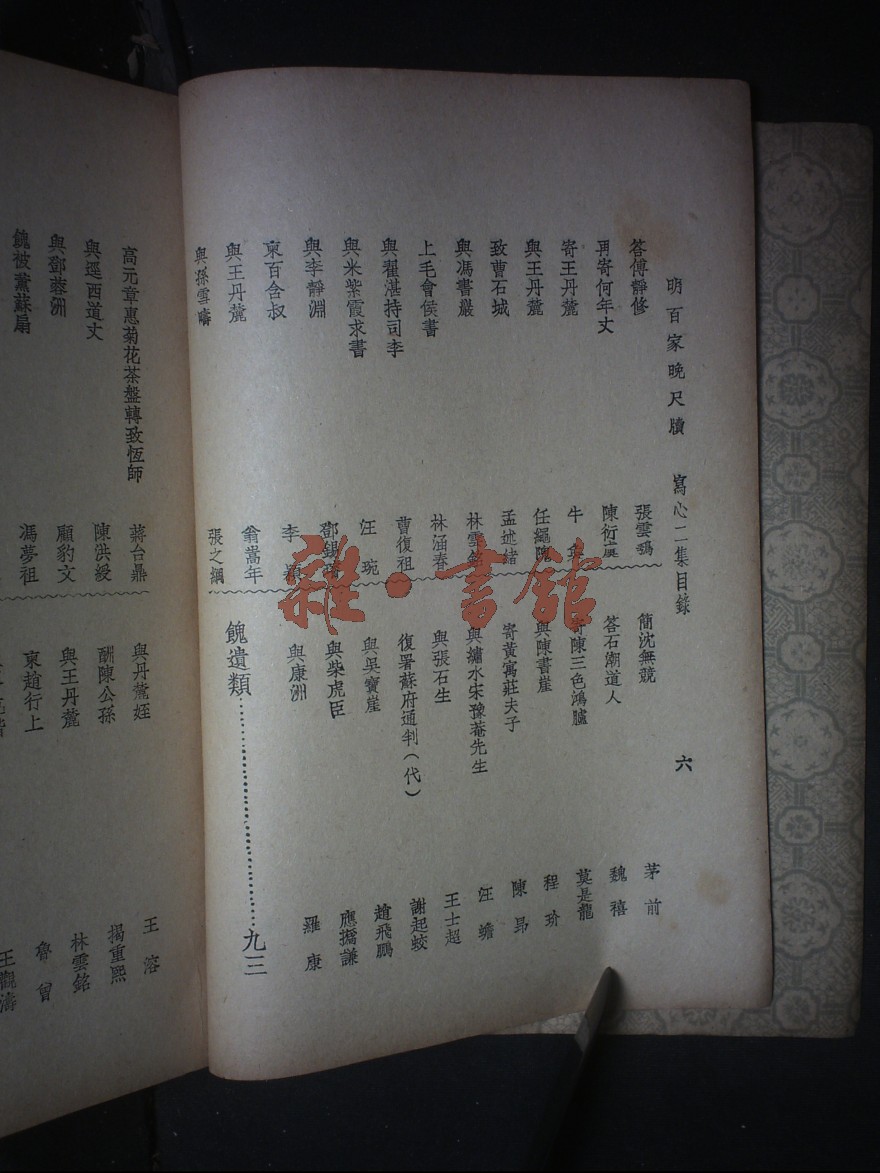 明百家晚尺牘　寫心二集目錄　六
答傅靜修　張雲鶚
再寄何年丈　陳衍虞
寄王丹麓　牛
與王丹麓　任繩隗
致曹石城　孟述緒
與馮書巖　林雲銘
上毛會侯書　林涵春
與翟湛持司李　曹復祖
與米紫霞求書　汪琬
與李靜淵　鄧
柬百含叔　李
與王丹麓　翁嵩年
與孫雲疇　張之綱
簡沈無競　茅前
答石潮道人　魏禧
寄陳三色鴻臚　莫是龍
與陳書崖　程玠
寄黃寓莊夫子　陳昴
與繡水宋豫菴先生　汪蟾
與張石生　王士超
復署蘇府通判（代）　謝起蛟
與吳寶崖　趙飛鵬
與柴虎臣　應撝謙
與康洲　羅康
餽遺類……九三
高元章惠菊花茶盤轉致恆師　蔣台鼎
與逕西道丈　陳洪綬
與鄧蓉洲　顧豹文
餽被薰蘇扇　馮夢祖
與丹麓姪　王溶
酬陳公孫　揭重熙
與王丹麓　林雲銘
柬趙行上　魯曾
王觀濤
雜·書館